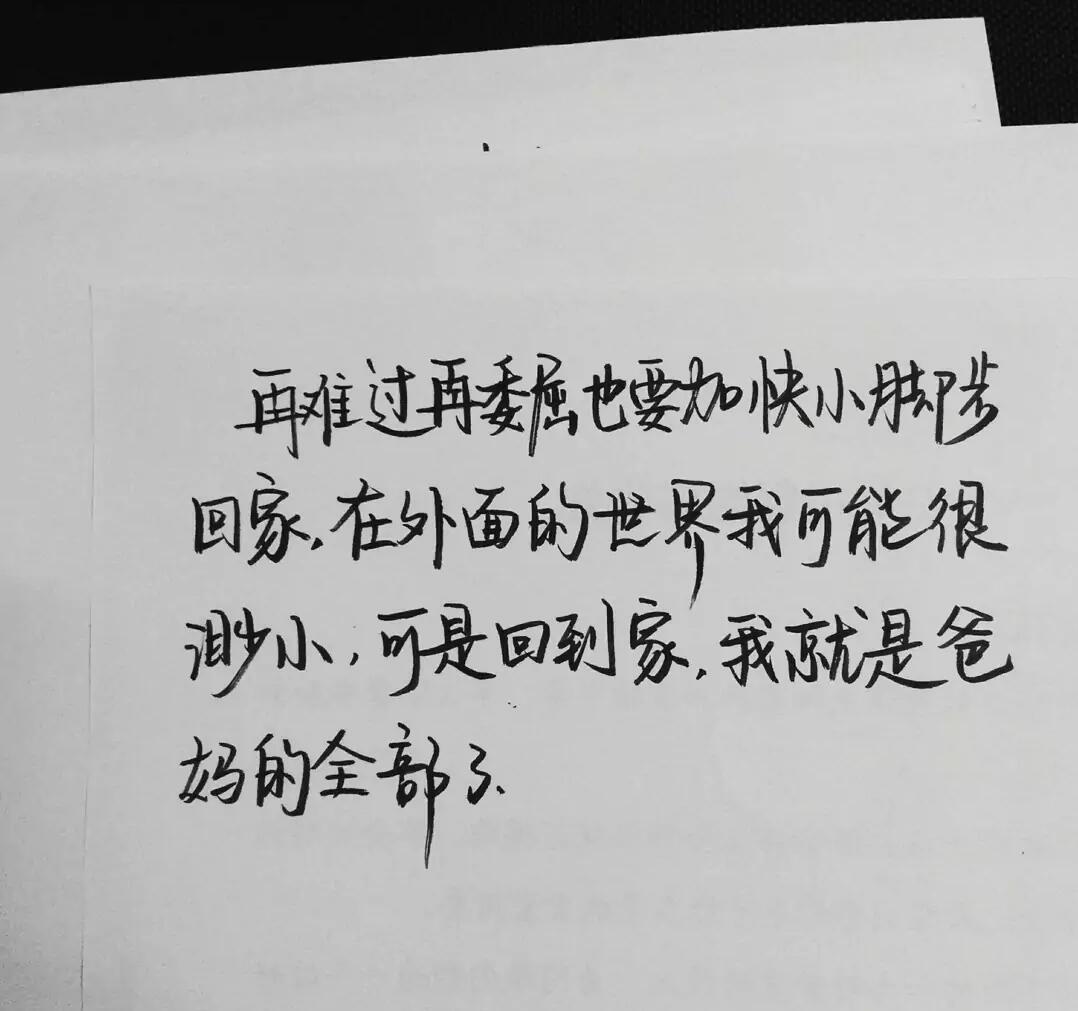 再难过再委屈也要加快小脚步
回家,在外面的世界我可能很
渺小,可是回到家,我就是爸
妈的全部了、